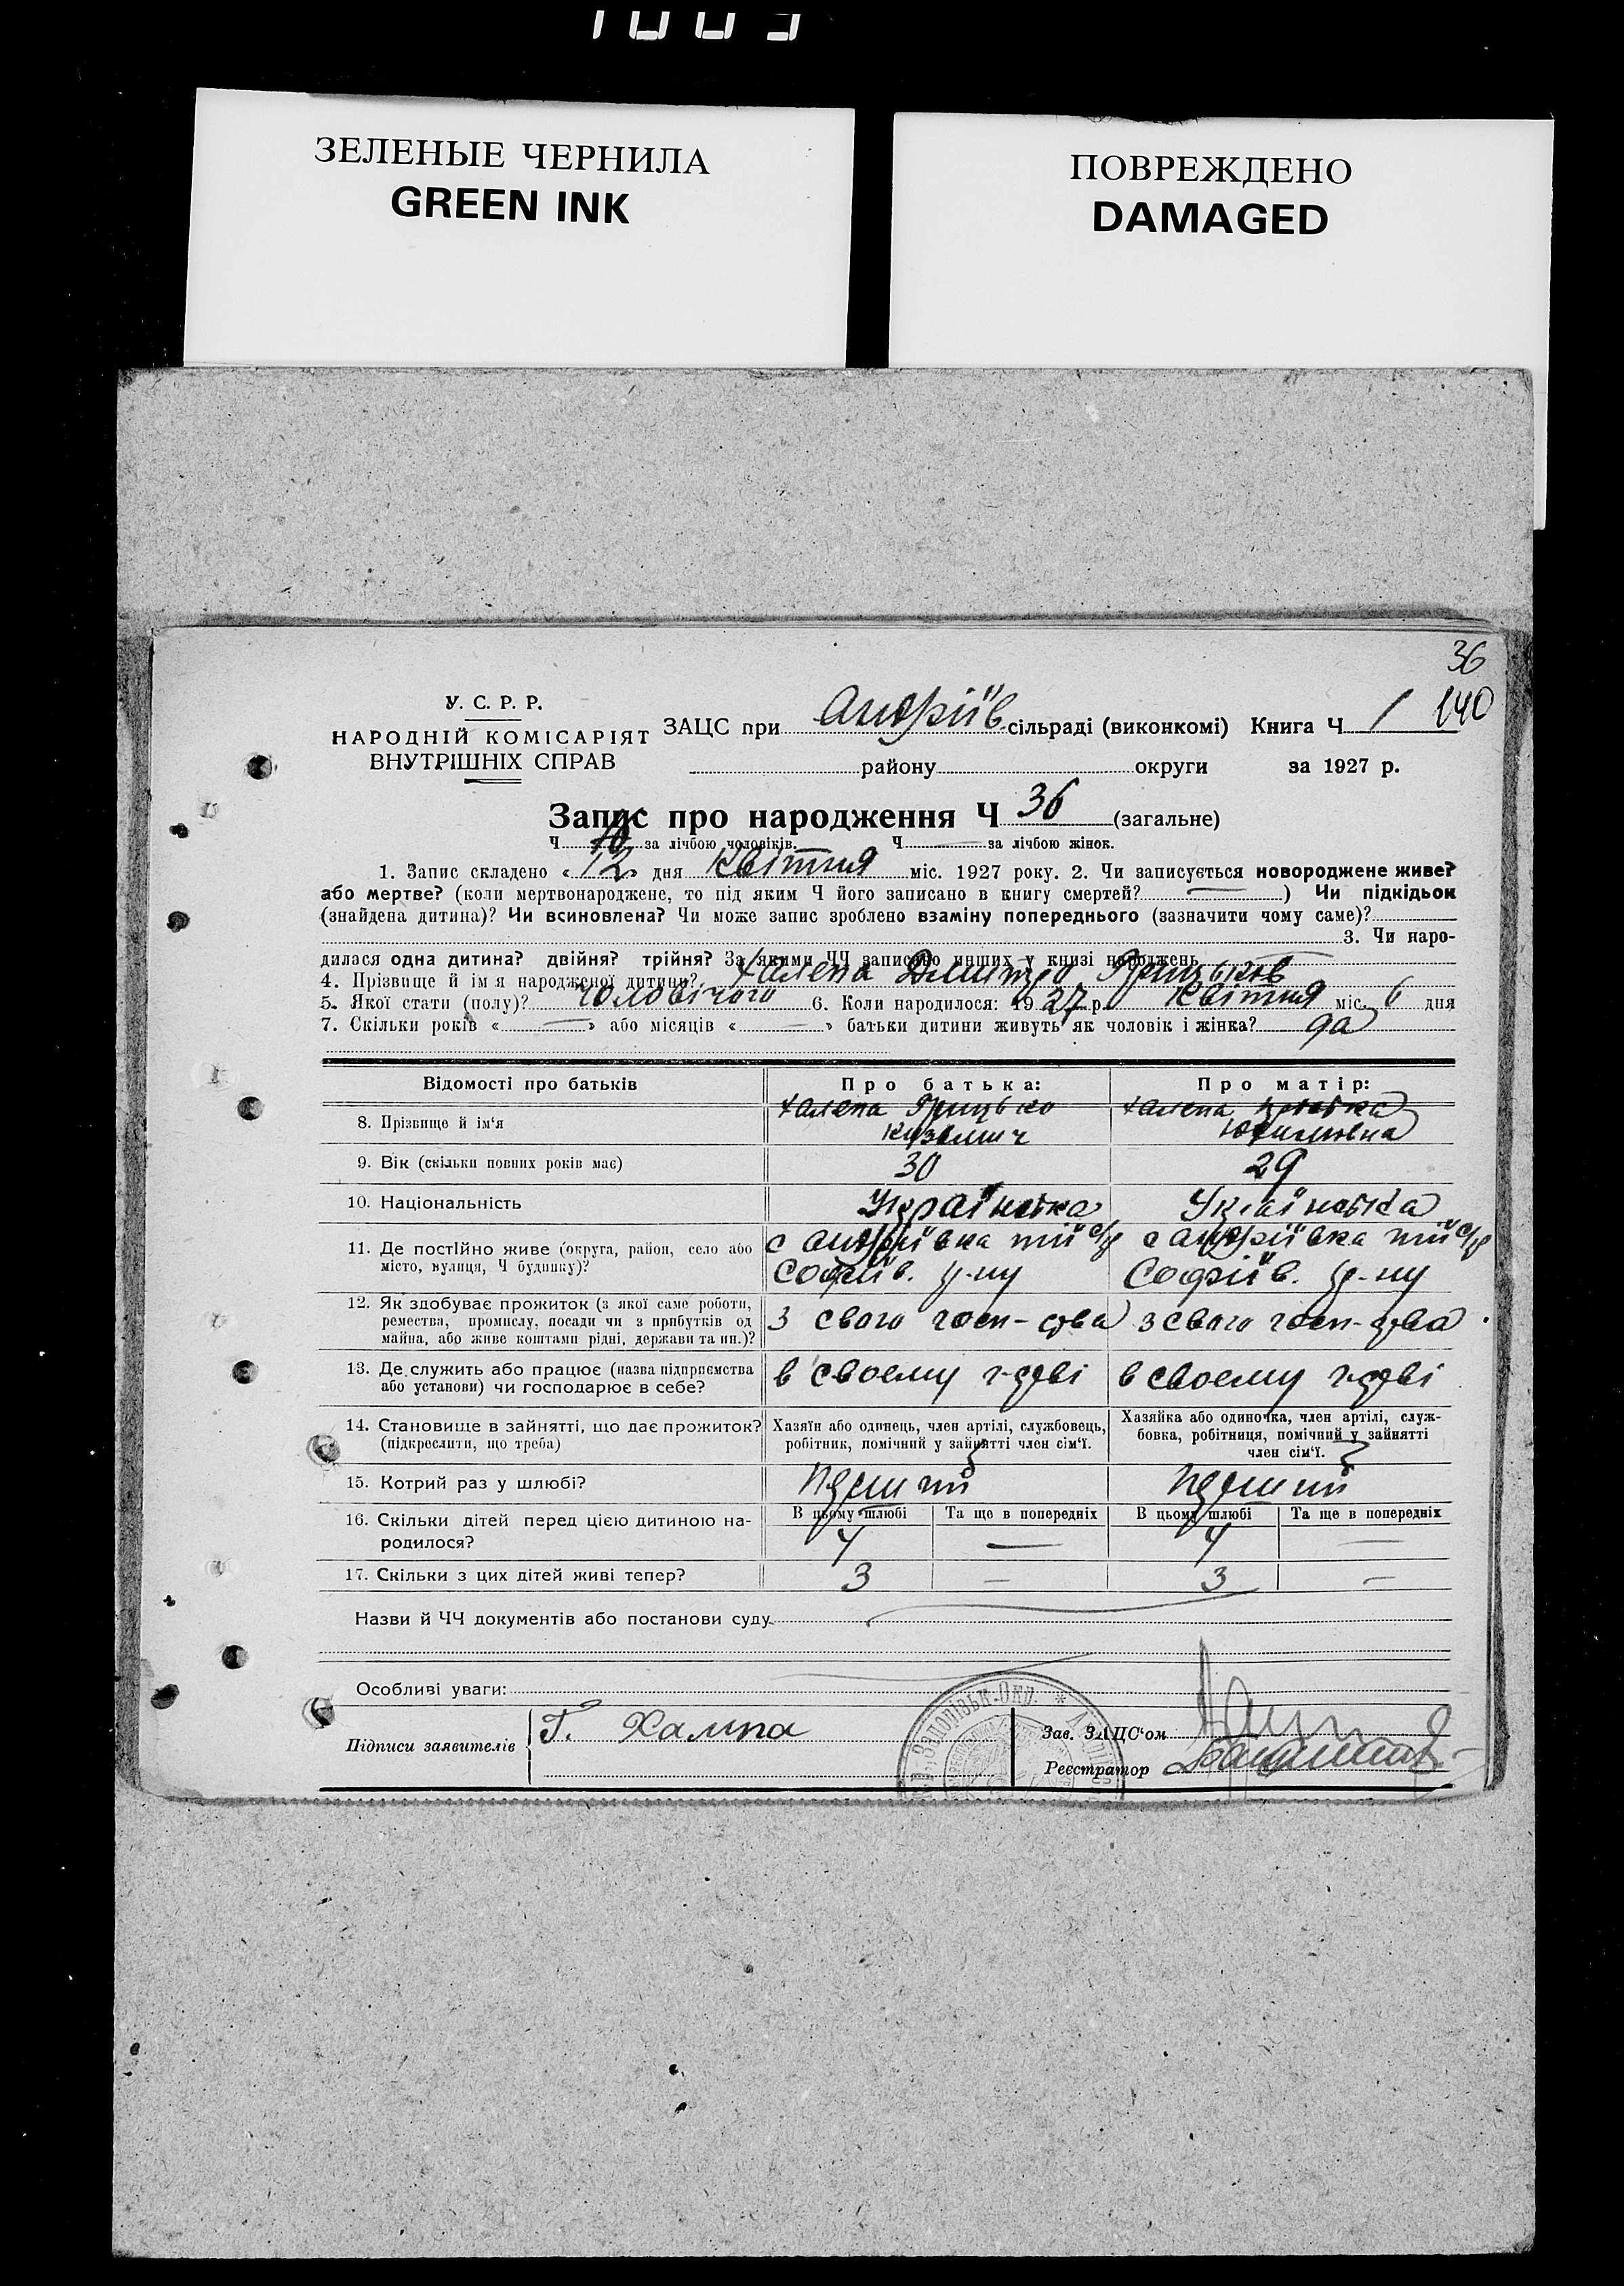 ЗЕЛЕНЫЕ ЧЕРНИЛА
GREEN INK
ПОВРЕЖДЕНО
DAMAGED
36
140
У. С. Р. Р.
НАРОДНІЙ КОМІСАРІЯТ
ВНУТРІШНІХ СПРАВ
ЗАЦС при Андріїв сільраді (виконкомі) Книга Ч 1
району округи за 1927 р.
Запис про народження Ч 36 (загальне)
Ч за лічбою чоловіків. Ч — за лічбою жінок.
1. Запис складено « 12 » дня Квітня міс. 1927 року. 2. Чи записується новороджене живе?
або мертве? (коли мертвонароджене, то під яким Ч його записано в книгу смертей? — ) Чи підкідьок
(знайдена дитина)? Чи всиновлена? Чи може запис зроблено взаміну попереднього (зазначити чому саме)?
3. Чи наро-
дилася одна дитина? двійня? трійня? За якими ЧЧ записано инших у книзі народжень
4. Прізвище й ім'я народженої дитини? Халепа Дмитро Грицьков
5. Якої стати (полу)? чоловічого 6. Коли народилося: 1927 р. Квітня міс. 6 дня
7. Скільки років « — » або місяців « — » батьки дитини живуть як чоловік і жінка? да
Відомості про батьків Про батька: Про матір:
8. Прізвище й ім'я Халепа Грицько Халепа
Кузьмич Юхимовна
9. Вік (скільки повних років має) 30 29
10. Національність Українська Українська
11. Де постійно живе (округа, район, село або с Андріївка тій с/р с Андріївка тій с/р
місто, вулиця, Ч будинку)? Софіїв. р-ну Софіїв. р-ну
12. Як здобуває прожиток (з якої саме роботи,
ремества, промислу, посади чи з прибутків од з свого госп-дтва з свого госп-дтва
майна, або живе коштами рідні, держави та ин.)?
13. Де служить або працює (назва підприємства в своему г-дтві в своему г-дтві
або установи) чи господарює в себе?
14. Становище в зайнятті, що дає прожиток? Хазяїн або одинець, член артілі, службовець, Хазяйка або одиночка, член артілі, служ-
(підкреслити, що треба) робітник, помічний у зайнятті член сім'ї. бовка, робітниця, помічний у зайнятті
член сім'ї.
15. Котрий раз у шлюбі? перший перший
В цьому шлюбі Та ще в попередніх В цьому шлюбі Та ще в попередніх
16. Скільки дітей перед цією дитиною на- 4 — 4 —
родилося?
17. Скільки з цих дітей живі тепер? 3 — 3 —
Назви й ЧЧ документів або постанови суду
Особливі уваги:
Підписи заявителів Г. Халпа
Зав. ЗАЦС'ом
Реєстратор